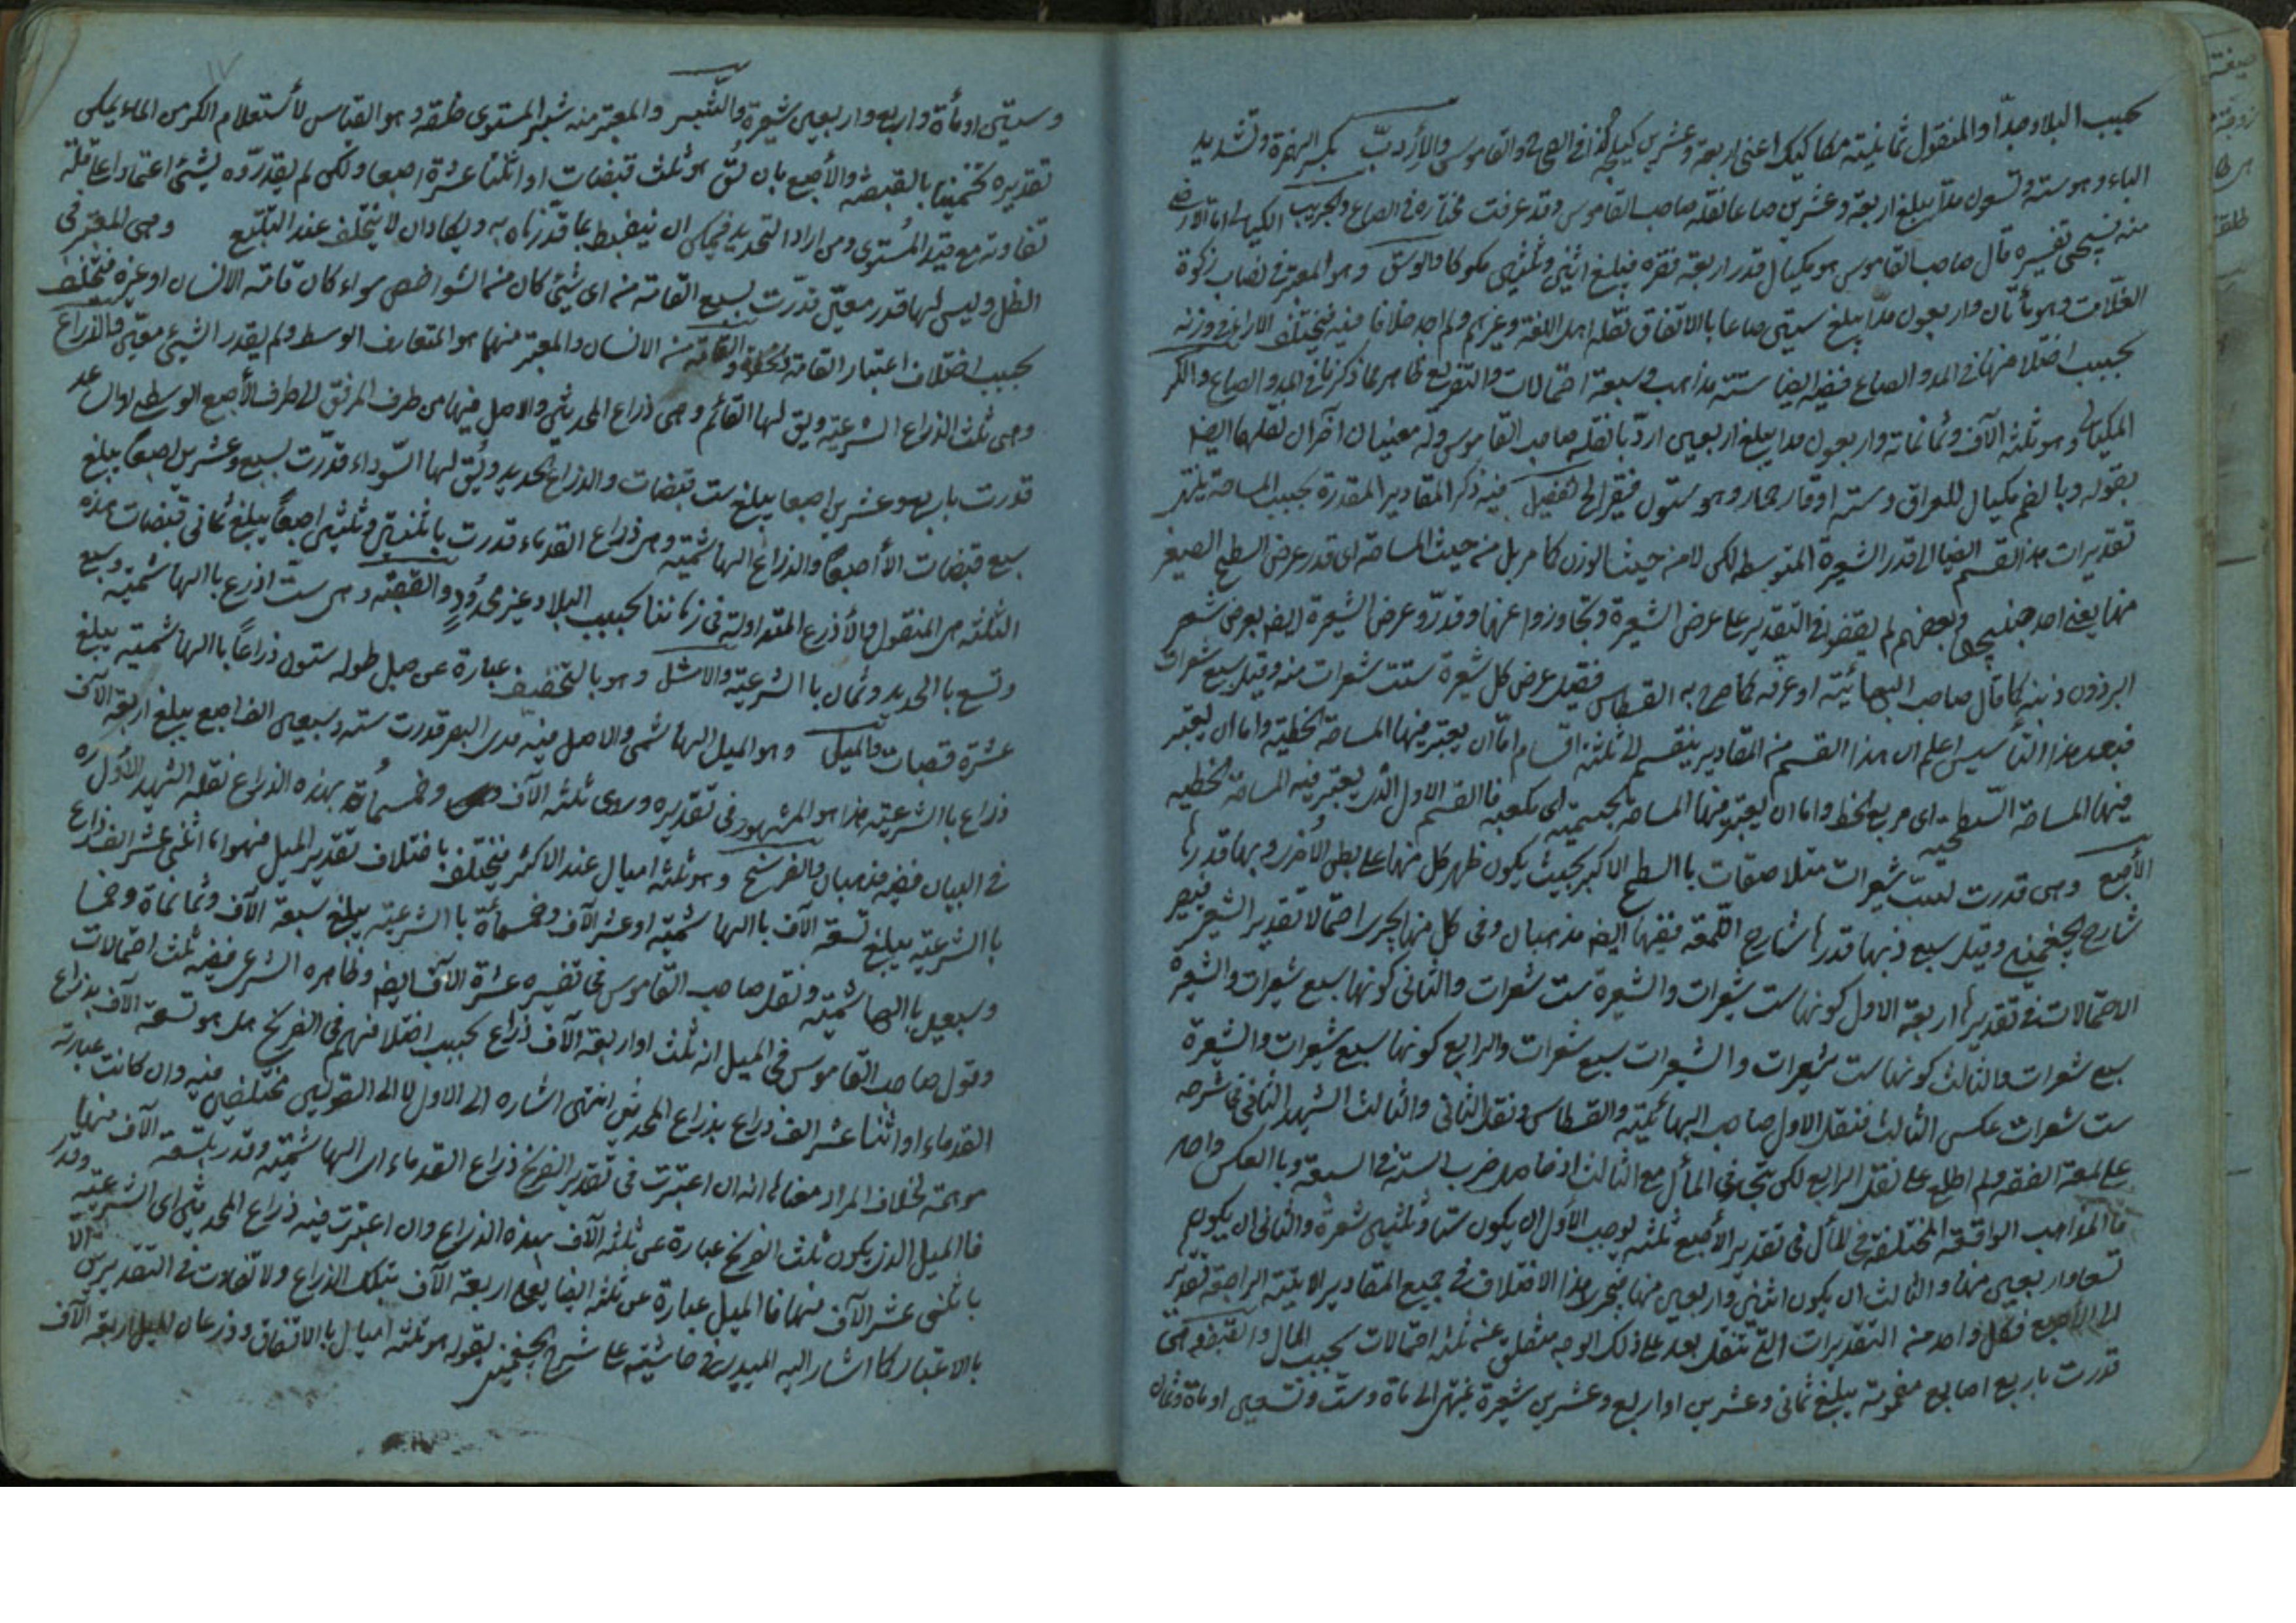 بحسب البلاد جدّا والمنقول ثمانية مكاكيك اعنى اربعة وعشرين كيلجه كذا فى الصحاح والقاموس والأردبّ بكسر الهمزة وتشديد
الباء وهو ستة وتسعون مدا يبلغ اربعة وعشرين صاعا نقله صاحب القاموس وقد عرفت مختاره فى الصاع والجريب الكيلى اما الارضى
منه فسيجئ تفسيره قال صاحب القاموس هو مكيال قدر اربعة نقزه فيبلغ اثنين وثلثين مكوكا والوسق وهو المعتبر فى نصاب زكوة
الغلات وهو مأتان واربعون مدا يبلغ ستين صاعا بالاتفاق نقله اهل اللغة وغيرهم ولم اجد خلافا فيه فيختلف الاراء فى وزنه
بحسب اختلافها فى المد والصاع ففيه ايضا ستة مذاهب وسبعة احتمالات والتفريع ظاهر مما ذكرنا فى المد والصاع والكر
المكيالى وهو ثلثة الآف وثمانمائة واربعون مدا يبلغ اربعين اردبّا نقله صاحب القاموس وله معنيان آخران نقلهما ايضا
بقوله وبالضم مكيال للعراق وستة اوقار حمار وهو ستون قفيزا الخ تفصيل فيه ذكر المقادير المقدرة بحسب المساحة ينتهى
تقديرات هذا القسم ايضا الى قدر الشعيرة المتوسطه لكن لا من حيث الوزن كما مر بل من حيث المساحة اى قدر عرض السطح الصغير
منها يعنى احد جنبيها وبعضهم لم يقفوا فى التقدير على عرض الشعيرة وتجاوزوا عنها وقدروا عرض الشعيرة ايضا بعرض شعر
البرذون ذنبه كما قال صاحب البهائية او عرفه كما صرح به القسطاس فقيل عرض كل شعيرة ستت شعرات منه وقيل سبع شعرات
فبعد هذا التأسيس اعلم ان هذا القسم من المقادير ينقسم الى ثلثة اقسام امّا ان يعتبر فيها المساحة الخطية واما ان يعتبر
فيها المساحة السطحية اى مربع الخط واما ان يعتبر فيها المساحة الجسمية اى مكعبه فالقسم الاول الذى يعتبر فيه المساحة الخطيه
الأصبع وهى قدرت لست شعيرات متلاصقات باالسطح الاكبر بحيث يكون ظهر كل منها على بطن الأخرى وبها قدرها
شارح الجغمينى وقيل سبع وبها قدرها شارح اللمعة ففيها ايضا مذهبان وفى كل منها يجرى احتمالا تقدير الشعير فيصير
الاحتمالات فى تقديرها اربعة الاول كونها ست شعيرات والشعيرة ست شعرات والثانى كونها سبع شعيرات والشعيرة
سبع شعرات والثالث كونها ست شعيرات والشعيرات سبع شعرات والرابع كونها سبع شعيرات والشعيرة
ست شعرات عكس الثالث فنقل الاول صاحب البهائية والقسطاس ونقل الثانى والثالث الشهيد الثانى فى شرحه
على لمعة الفقه ولم اطلع على نقل الرابع لكن يتحد فى المأل مع الثالث اذ حاصل ضرب الستة فى السبعة وباالعكس واحد
فاالمذاهب الواقعة المختلفة فى المأل فى تقدير الأصبع ثلثة يوجب الأول ان يكون ستا وثلثين شعرة والثانى ان يكون
تسعا واربعين منها والثالث ان يكون اثنين واربعين منها فيجرى هذا الاختلاف فى جميع المقادير الاتية الراجعة تقدير
الى الأصبع فكل واحد منه التقديرات التى تنقل بعد على ذلك الوجه عنه ثلثة احتمالات بحسب المال والقبضة وهى
قدرت باربع اصابع مضمومة يبلغ ثمانى وعشرين او اربع وعشرين شعيرة ينتهى الى مأة وست وتسعين او مأة وثمان
وستين او مأة واربع واربعين شعيرة والشبر والمعتبر منه شبر المستوى خلقه وهو القياس لأستعلام الكر من الماء يمكن
تقديره تخمينا بالقبضه والأصبع بان يُق هو ثلث قبضات او اثنتا عشرة اصبعا ولكن لم يقدروه بشئ اعتمادا على قلة
تفاوته مع قيد المستوى ومن اراد التحديد فيمكن ان ينضبط بما قدرناه به ويكاد ان لا يختلف عند التتبّع وهى المعتبر فى
الظل وليس لها قدر معيّن قدّرت بسبع القامة من اى شئ كان منه الشواخص سواء كان قامة الانسان او غيره فيختلف
بحسب اختلاف اعتبار القامة والقامة منه الانسان والمعتبر منهما هو المتعارف الوسط ولم يقدر الشئ معين والذراع
وهى ثلث الذراع الشرعية ويق لها القائم وهى ذراع المحدثين والاصل فيها من طرف المرفق الى طرف الأصبع الوسطى
قدرت باربعه وعشرين اصبعا يبلغ ست قبضات والذراع الحديد ويُق لها السّوداء قدّرت بسبع وعشرين اصبعا يبلغ
سبع قبضات الأ اصبعا والذراع الهاشميّه وهى ذراع القدماء قدرت باثنين وثلثين اصبعاً يبلغ ثمانى قبضات هذه
الثلثه هى المنقول والأذرع المتداولة فى زماننا بحسب البلاد غير محدود والقصبة وهى ست اذرع باالهاشمية وسبع
وتسع باالحديد وثمان باالشرعية والاشل وهو بالتخفيف عبارة عن حبل طوله ستون ذراعاً باالهاشمية يبلغ
عشرة قصبات والميل وهو الميل الهاشمى والاصل فيه مدى البصر قدرت ستة وسبعين الف اصبع يبلغ اربعة الآف
ذراع باالشرعية هذا هو المشهور فى تقديره وروى ثلثة الآف وخمسمأة بهذه الذراع نقله الشهيد الأول ره
فى البيان ففيه مذهبان والفرسخ وهو ثلثه اميال عند الاكثر فيختلف باختلاف تقدير الميل فهو اما اثنى عشر الف ذراع
باالشرعية يبلغ تسعة الآف باالهاشمية او عشر الآف وخمسمأة باالشرعية يبلغ سبعة الآف وثمانمأة وخمسا
وسبعين باالهاشمية ونقل صاحب القاموس فى تفسيره عشرة الآف ايضا وظاهره الشرعى ففيه ثلث احتمالات
وقول صاحب القاموس فى الميل انه ثلث او اربعة الآف ذراع بحسب اختلافهم فى الفرسخ هل هو تسعة الآف بذراع
القدماء او اثنا عشر الف ذراع بذراع المحدثين انتهى اشاره الى الاول لا الى القولين مختلفين فيه وان كانت عبارته
موهمة لخلاف المراد معناها انه ان اعتبرت فى تقدير الفرسخ ذراع القدماء اى الهاشمية وقدر بتسعة الآف منها
فاالميل الذى يكون ثلث الفرسخ عبارة عن ثلثة الآف بهذه الذراع وان اعتبرت فيه ذراع المحدثين اى الشرعية وقدر
باثنى عشر الآف منها فاالميل عبارة عن ثلثه ايضا يعنى اربعة الآف بتلك الذراع ولا تفاوت فى التقديرين الا
بالاعتبار كما اشار اليه الميبدى فى حاشيته على شرح الجغمينى بقوله هو ثلثة اميال باالاتفاق وذرعان الميل اربعة الآف